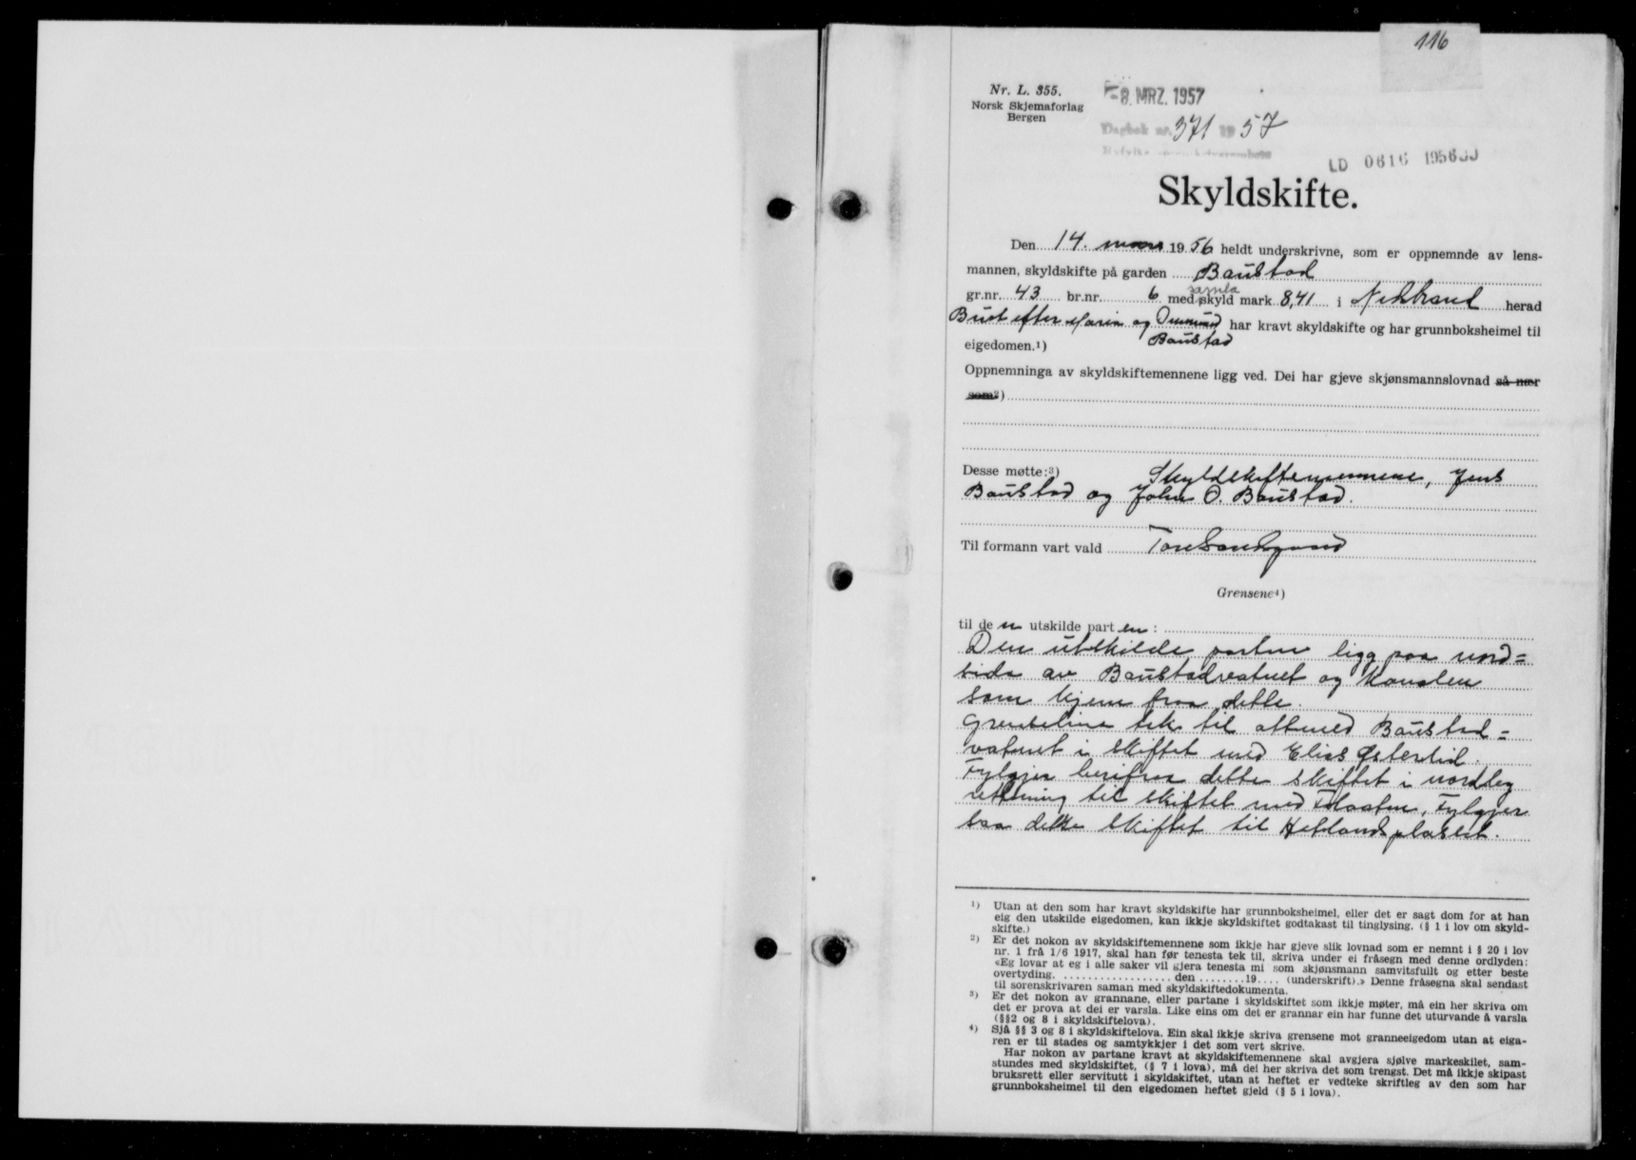 116
Nr. L. 355.
Norsk Skjemaforlag
Bergen
-8. MRZ. 1957
Dagbok nr. 371 19 57
LD 0616 1956
Skyldskifte.
Den 14. mars 1956 heldt underskrivne, som er oppnemnde av lens-
mannen, skyldskifte på garden Baustad
gr.nr. 43 br.nr. 6 med samla skyld mark 8,41 i Nedstrand herad
Buet efter Maria og Ommund Baustad har kravt skyldskifte og har grunnboksheimel til
eigedomen.¹)
Oppnemninga av skyldskiftemennene ligg ved. Dei har gjeve skjønsmannslovnad så nær
som²)
Desse møtte:³) Skyldskiftemennene, Jens
Baustad og John O. Baustad.
Til formann vart vald Tore Sandgaard
Grensene⁴)
til de n utskilde part en:
Den utskilde parten ligg paa nord=
sida av Baustadvatnet og Kanalen
som kjem fraa dette.
Grenselina tek til attmed Baustad=
vatnet i skiftet med Elias Østerlid.
Fylgjer herifraa dette skiftet i nordleg
rettning til skiftet med Flaaten, Fylgjer
saa dette skiftet til Hetlandsplasset.
¹) Utan at den som har kravt skyldskifte har grunnboksheimel, eller det er sagt dom for at han
eig den utskilde eigedomen, kan ikkje skyldskiftet godtakast til tinglysing. (§ 1 i lov om skyld-
skifte.)
²) Er det nokon av skyldskiftemennene som ikkje har gjeve slik lovnad som er nemnt i § 20 i lov
nr. 1 frå 1/6 1917, skal han før tenesta tek til, skriva under ei fråsegn med denne ordlyden:
«Eg lovar at eg i alle saker vil gjera tenesta mi som skjønsmann samvitsfullt og etter beste
overtyding. .................. den ........19.... (underskrift).» Denne fråsegna skal sendast
til sorenskrivaren saman med skyldskiftedokumenta.
³) Er det nokon av grannane, eller partane i skyldskiftet som ikkje møter, må ein her skriva om
det er prova at dei er varsla. Like eins om det er grannar ein har funne det uturvande å varsla
(§§2 og 8 i skyldskiftelova).
⁴) Sjå §§ 3 og 8 i skyldskiftelova. Ein skal ikkje skriva grensene mot granneeigedom utan at eiga-
ren er til stades og samtykkjer i det som vert skrive.
Har nokon av partane kravt at skyldskiftemennene skal avgjera sjølve markeskilet, sam-
stundes med skyldskiftet, (§ 7 i lova), må dei her skriva det som trengst. Det må ikkje skipast
bruksrett eller servitutt i skyldskiftet, utan at heftet er vedteke skriftleg av den som har
grunnboksheimel til den eigedomen heftet gjeld (§ 5 i lova).